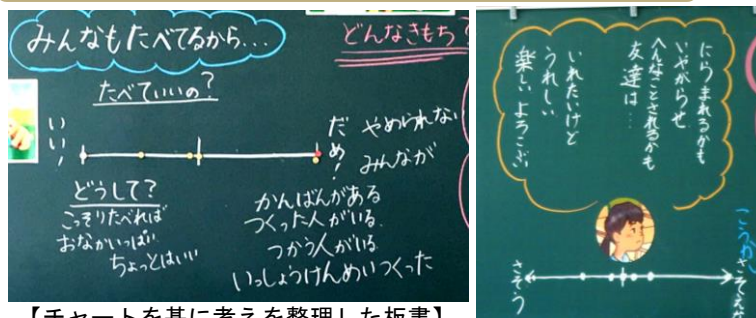 みんなもたべてるから…
どんなきもち？
たべていいの？
いい！
だめ！
やめられない
みんなが
どうして？
こっそりたべれば
おなかいっぱい
ちょっとはいい
かんばんがある
つくった人がいる
つかう人がいる
いっしょうけんめいつくった
【チャートを基に考えを整理した板書】
にらまれるかも
いやがらせ
へんなことされるかも
友達は…
いれたいけど
うれしい
楽しい よろこぶ
さそう
さそえ